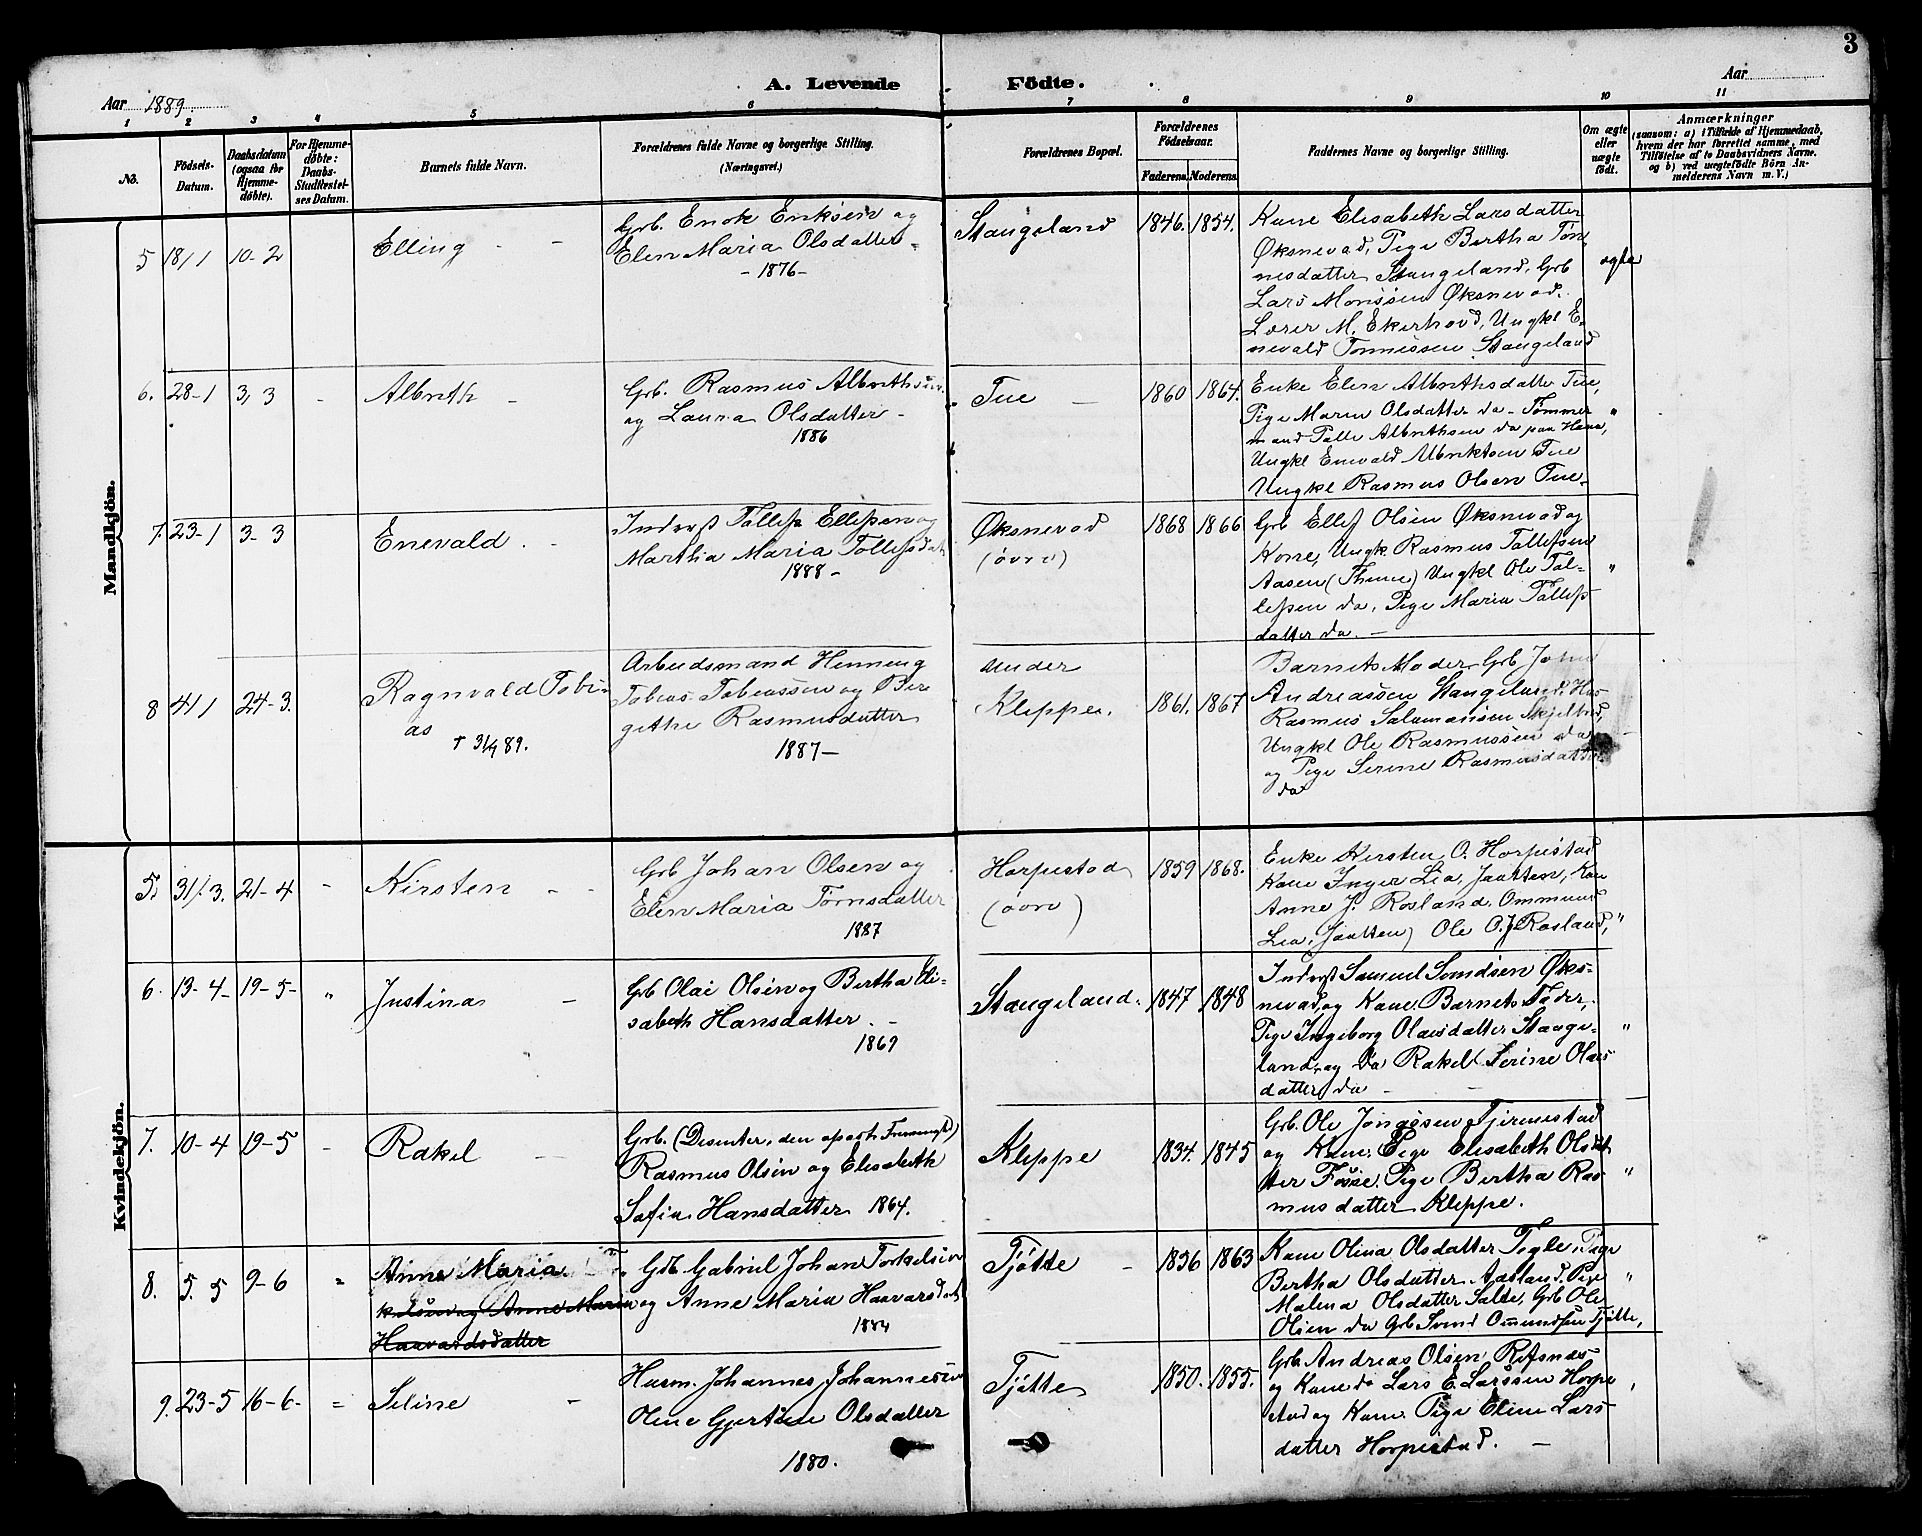 3
A. Levende Födte.
Aar 1889. Aar
1 2 3 4 5 6 7 8 9 10 11
No.
Födsels-Datum.
Daabsdatum (ogsaa for Hjemme-döbte).
For Hjemme-döbte: Daabs-Stadfæstel-ses Datum.
Barnets fulde Navn.
Forældrenes fulde Navne og borgerlige Stilling. (Næringsvei.)
Forældrenes Bopæl.
Forældrenes Födselsaar.
Faderens. Moderens.
Faddernes Navne og borgerlige Stilling.
Om ægte eller uægte födt.
Anmærkninger
(saasom: a) i Tilfælde af Hjemmedaab,
hvem der har forrettet samme, med
Tilföielse af to Daabsvidners Navne.
og b) ved uægtefödte Börn An-
melderens Navn m. V.)
Mandkjön.
5 18/1 10-2 Elling - -
Grb. Enok Eriksen og
Elen Maria Olsdatter -
- 1876 -
Stangeland 1846. 1854.
Kone Elisabeth Larsdatter
Øksnevad, Pige Bertha Tøn
nesdatter Stangeland, Grb
Lars Monssen Øksnevad.
Lærer M. Ekerhovd, Ungkl E-
nevald Tønnessen Stangeland
ægte
6. 28-1 3, 3 - Albrith -
Grb. Rasmus Albrithsen
og Laura Olsdatter -
1886
Tue - 1860 1864.
Enke Elen Albrithsdatter Tue,
Pige Maren Olsdatter da - Tømmer
mand Tolle Albrithsen da paa Hana,
Ungkl Enevald Albriktsen Tue
Ungkl Rasmus Olsen Tue -
"
7. 23-1 3-3 Enevald. -
Inderst Tollef Ellefsen og
Martha Maria Tollefsdat
1888 -
Øksnevad
(øvre)
1868 1866
Grb Ellef Olsen Øksnevad og
Kone, Ungk. Rasmus Tollefsen
Aasen (Thime) Ungkl Ole Tol-
lefsen da, Pige Maria Tollefs-
datter da. -
"
8 4/1 24-3. Ragnvald Tobi-
as
† 31/9 89.
Arbeidsmand Henning
Tobias Tobiassen og Bir
gethe Rasmusdatter
1887 -
under
Kleppe. 1861. 1867
Barnets Moder, Grb John
Andreassen Stangeland, Hus
Rasmus Salamonsen
Ungkl Ole Rasmussen da
og Pige Serine Rasmusdatter
da
Kvindekjön.
5. 31/3. 21-4 - Kirsten - -
Grb Johan Olsen og
Elen Maria Tørnsdatter
1887
Horpestad
(øvre)
1859 1868.
Enke Kirsten O. Horpestad
Kone Inger Lea, Jaatten, Kone
Anne J. Rosland, Ommund
Lea, Jaatten) Ole O. J. Rosland,
"
6. 13-4- 19-5- " Justina -
Grb Olai Olsen og Bertha Eli-
sabeth Hansdatter. -
1869
Stangeland. 1847 1848
Inderst Samuel Svendsen Øks-
nevad og Kone. Barnets Fader,
Pige Ingeborg Olaisdatter Stange-
land, og Da Rakel Serine Olais
datter da -
"
7. 10-4 19-5 - Rakel -
Grb. (Desenter, den apost. Frimenigh)
Rasmus Olsen og Elisabeth
Sofia Hansdatter 1864.
Kleppe 1834. 1845
Grb. Ole Jongsen Tjernestad
og Kone. Pige Elisabeth Olsdat
ter Fosse. Pige Bertha Ras
musdatter Kleppe.
"
8. 5. 5 9-6 = Anne Maria
og Anne Maria
Haavardsdatter
Grb Gabriel Johan Torkelsen
og Anne Maria Haavarsdat
1884
Tjøtte - 1836 1863
Kone Olina Olsdatter Tegle, Pige
Bertha Olsdatter Aasland, Pige
Malena Olsdatter Salte, Grb Ole
Olsen da Grb Svend Ommundsen Tjøtte,
"
9. 23-5 16-6- = Seline -
Husm. Johannes Johannessen
Oline Gjertine Olsdatter
1880.
Tjøtte 1850. 1855.
Grb. Andreas Olsen Refsnes
og Kone da Lars E. Larssen Horpe
stad og Kone. Pige Eline Lars
datter Horpestad. -